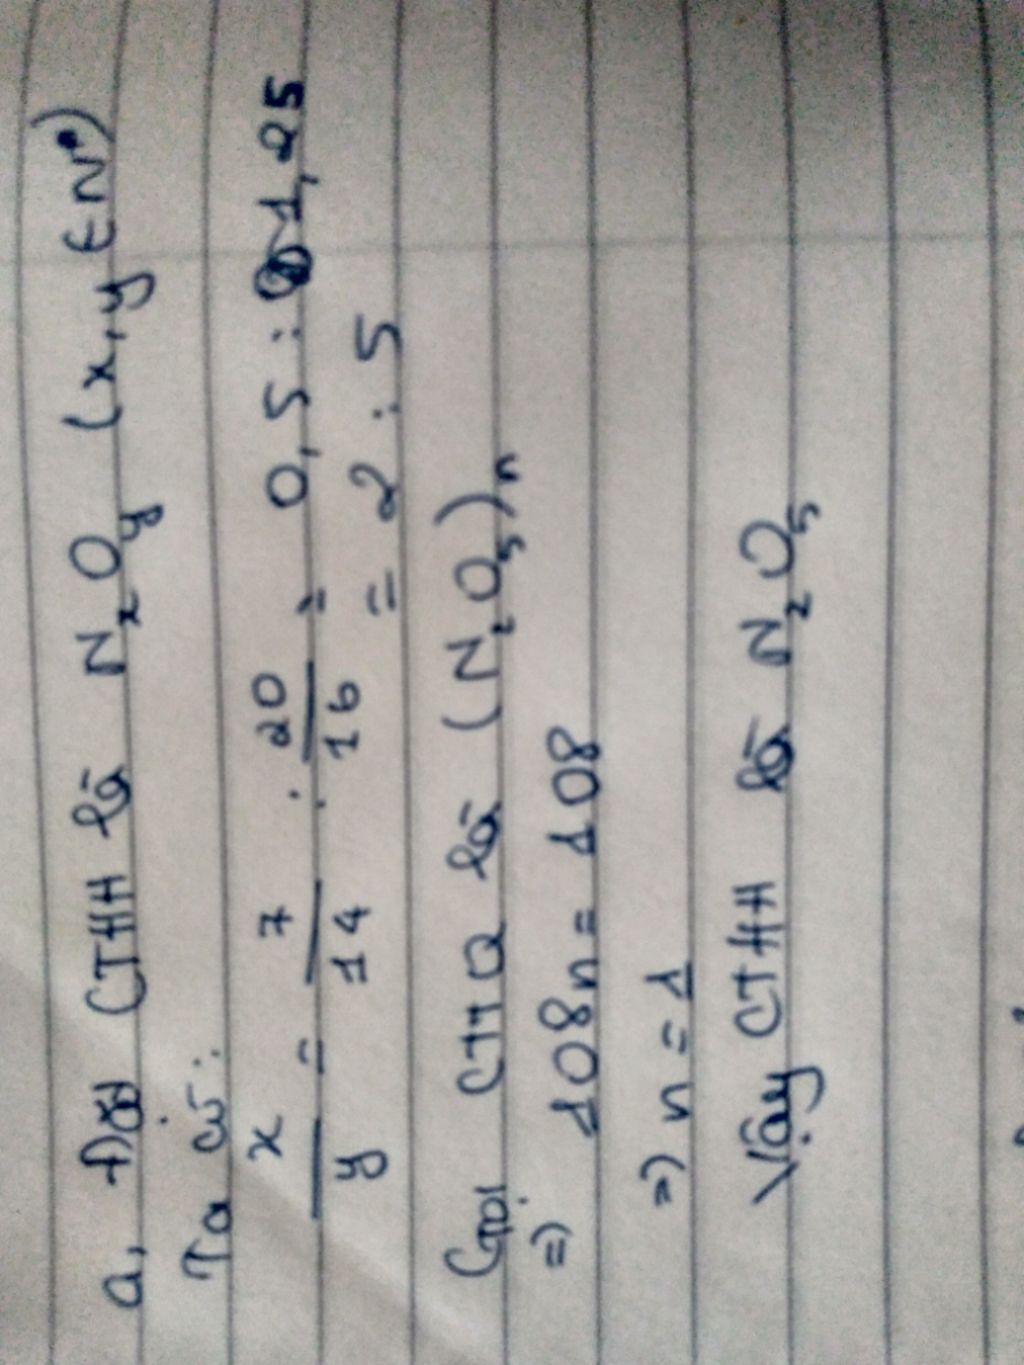 a, Đặt CTHH là NxOy (x,y ∈ N*)
Ta có:
x/y = 7/14 : 20/16 = 0,5 : 1,25
= 2 : 5
Gọi CTTQ là (N2O5)n
=) 108n = 108
=) n = 1
Vậy CTHH là N2O5